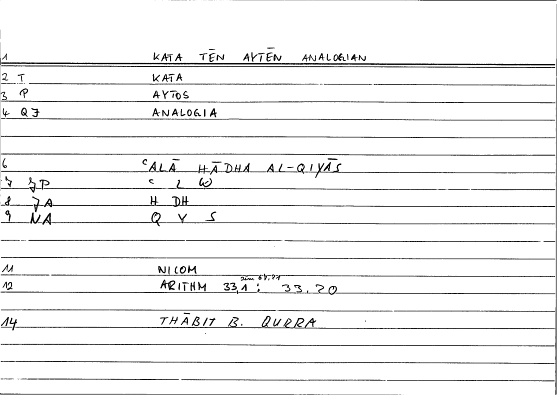 1 KATA TĒN AYTĒN ANALOGIAN
2 T KATA
3 P AYTOS
4 QJ ANALOGIA
6 ᶜALĀ HĀDHA AL-QIYĀS
7 JP ᶜ L W
8 JA H DH
9 NA Q Y S
11 NICOM
12 ARITHM 33,1 : 33.20
14 THĀBIT B. QURRA